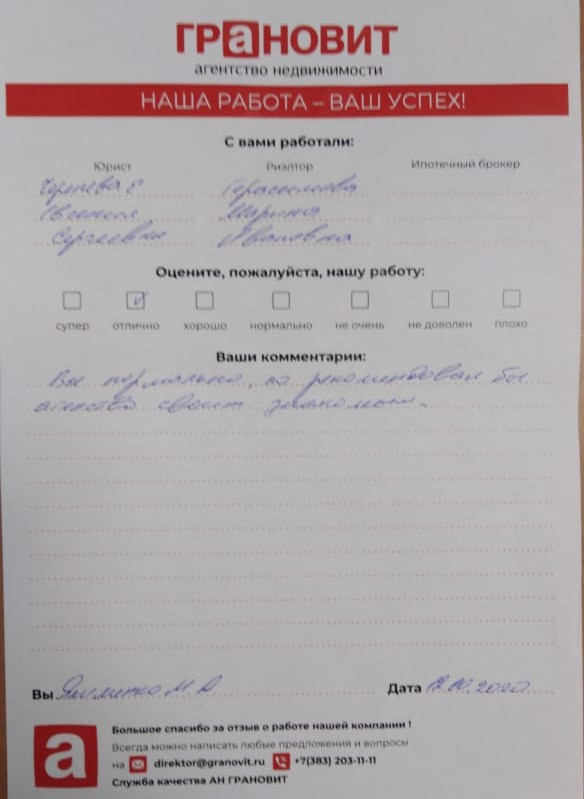 ГРаНОВИТ
агентство недвижимости
НАША РАБОТА – ВАШ УСПЕХ!
С вами работали:
Юрист Риэлтор Ипотечный брокер
Герасимова
Евгения Марина
Сергеевна Ивановна
Оцените, пожалуйста, нашу работу:
супер отлично хорошо нормально не очень не доволен плохо
Ваши комментарии:
Все нормально, рекомендовал бы
агенство своим знакомым.
Вы М А
Дата 12.10.2020
Большое спасибо за отзыв о работе нашей компании !
Всегда можно написать любые предложения и вопросы
на direktor@granovit.ru +7(383) 203-11-11
Служба качества АН ГРАНОВИТ
а